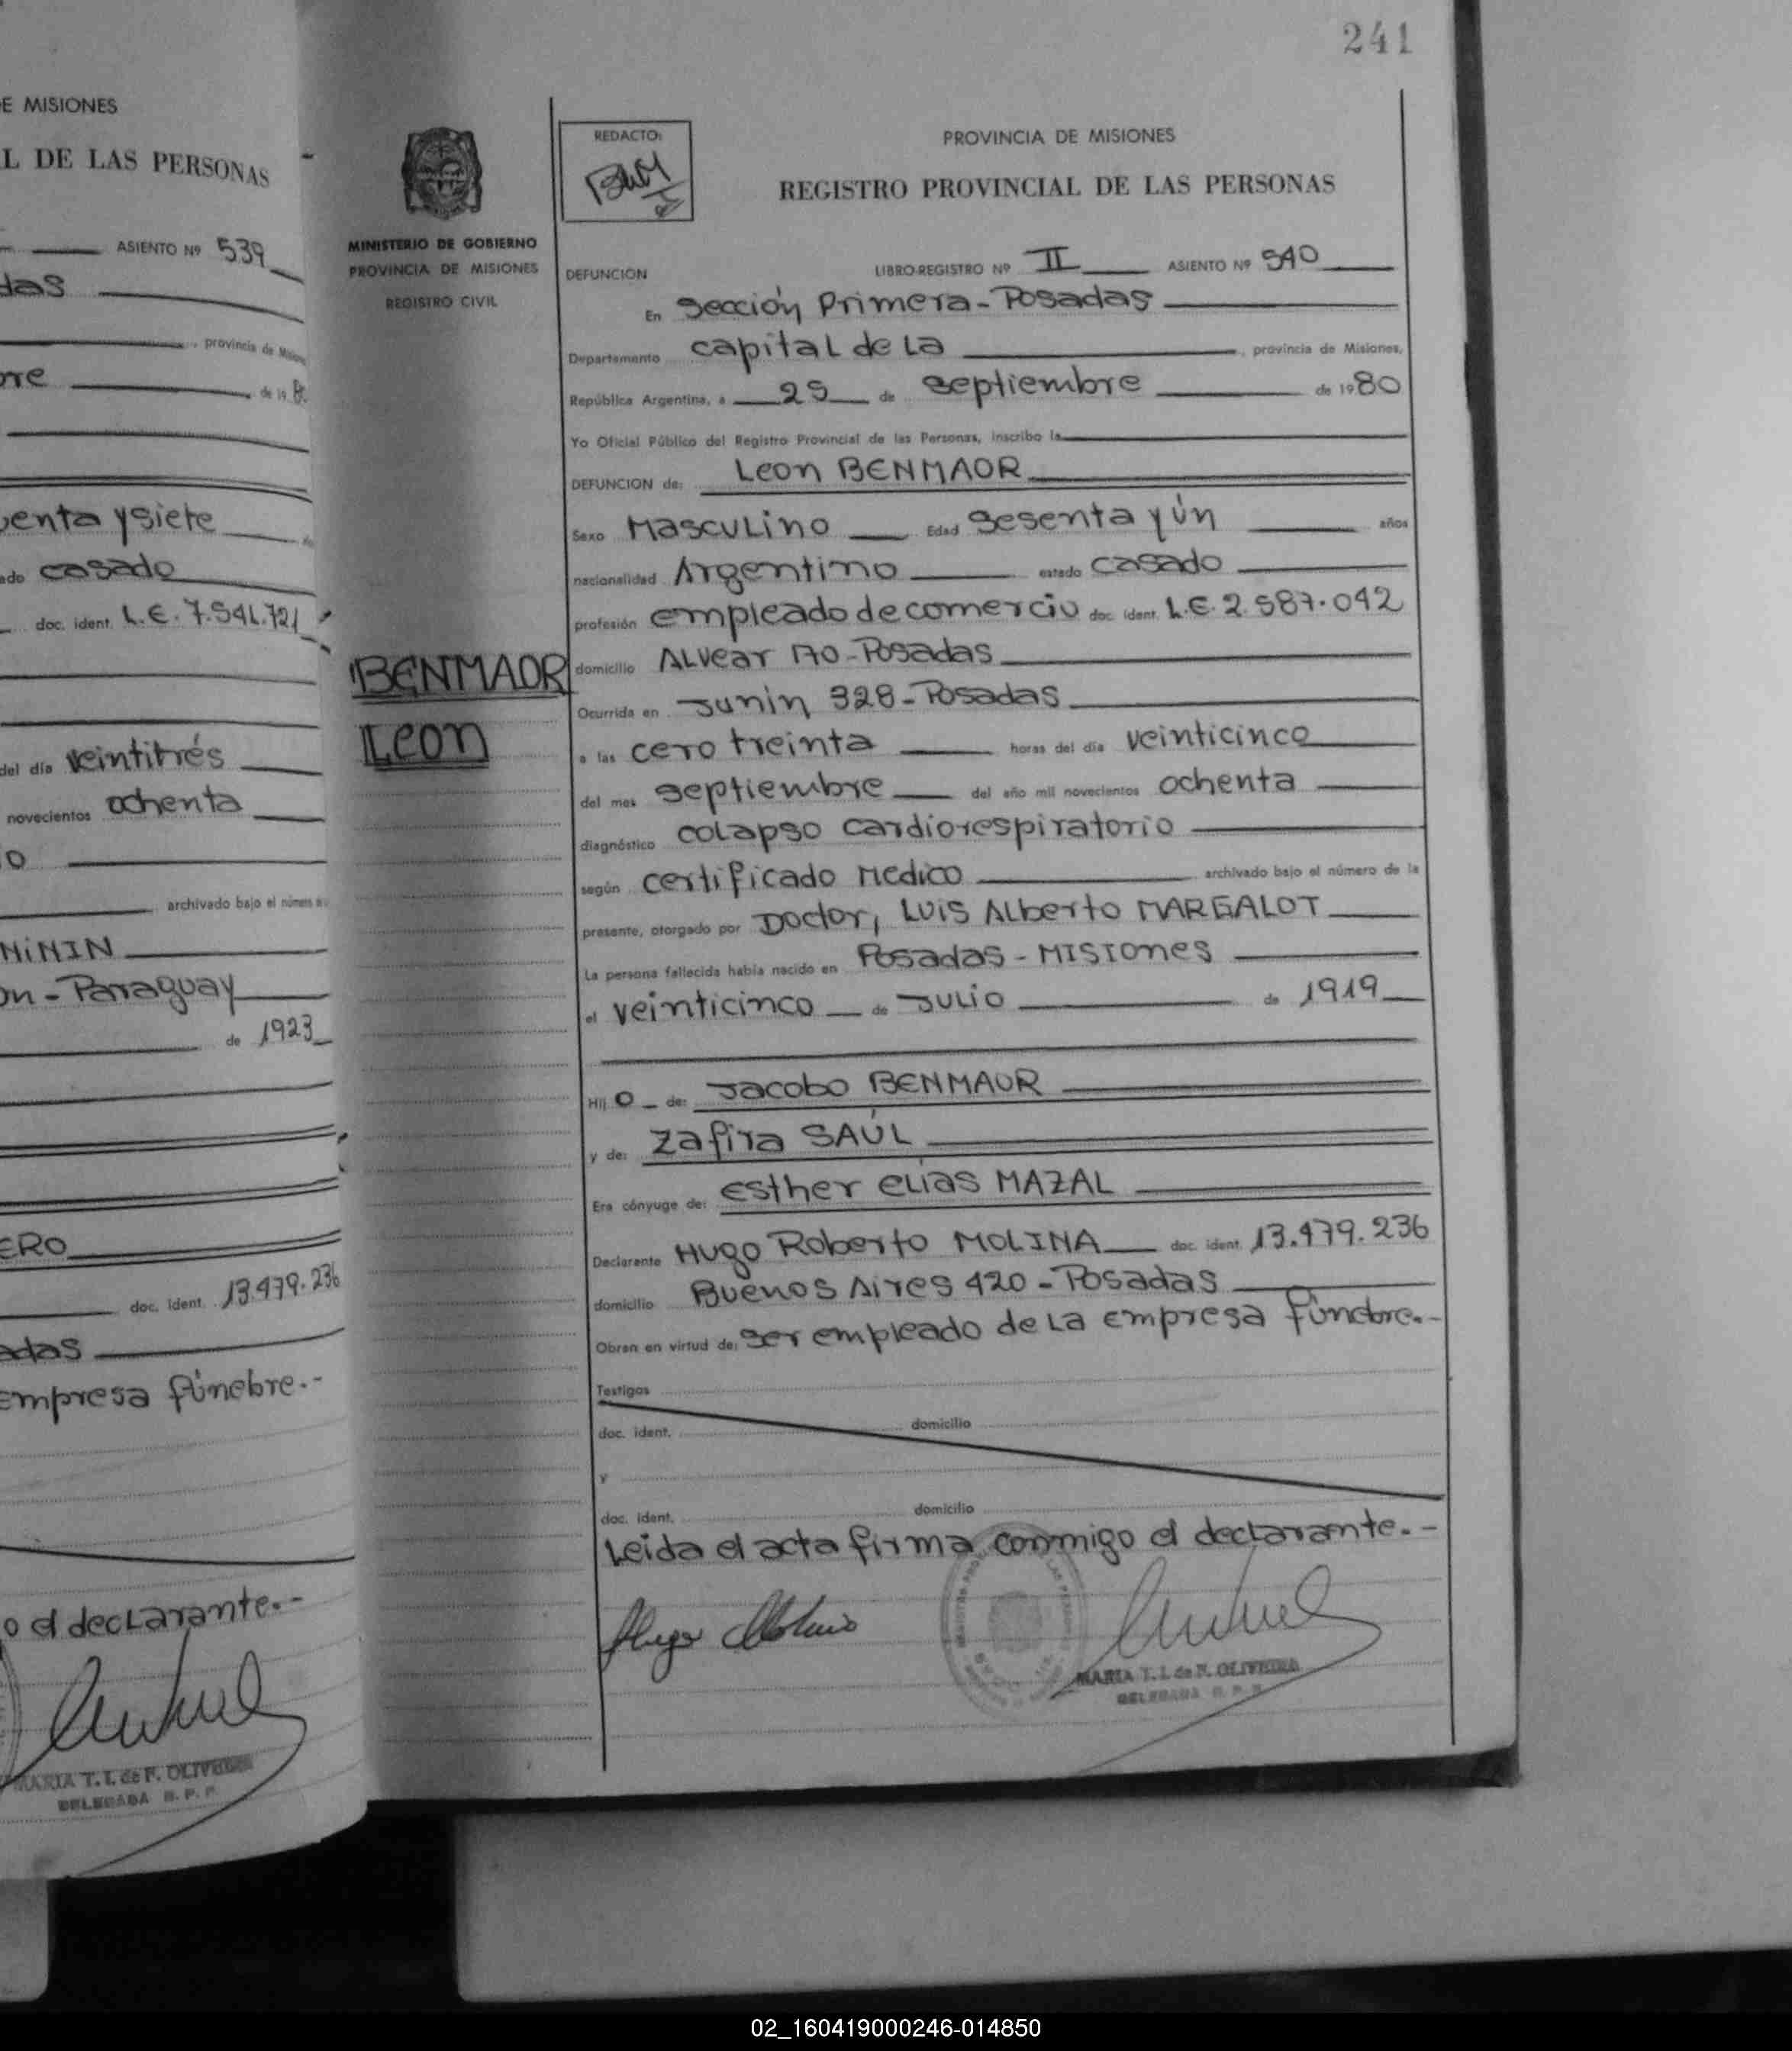 E MISIONES
L DE LAS PERSONAS
ASIENTO Nº 539
das
provincia de Misiones
bre de 19 8
uenta y siete
ado casado
doc. ident. L.E. 7.541.721
del día veintitrés
novecientos ochenta
o
archivado bajo el número
NiNIN
on - Paraguay
de 1923
ERO
doc. ident. 13.479.236
adas
Empresa fúnebre.-
o el declarante.-
MARIA T. I. de F. OLIVEIRA
DELEGADA R. P. P.
241
MINISTERIO DE GOBIERNO
PROVINCIA DE MISIONES
REGISTRO CIVIL
BENMAOR
Leon
REDACTO:
PROVINCIA DE MISIONES
REGISTRO PROVINCIAL DE LAS PERSONAS
DEFUNCION LIBRO-REGISTRO Nº II ASIENTO Nº 540
En Sección Primera - Posadas
Departamento capital de la , provincia de Misiones,
República Argentina, a 25 de septiembre de 1980
Yo Oficial Público del Registro Provincial de las Personas, inscribo la
DEFUNCION de: Leon BENMAOR
Sexo Masculino Edad Sesenta y ún años
nacionalidad Argentino estado casado
profesión empleado de comercio doc. ident. L.E. 2.587.042
domicilio Alvear 170 - Posadas
Ocurrida en Junin 328 - Posadas
a las cero treinta horas del día veinticinco
del mes septiembre del año mil novecientos ochenta
diagnóstico colapso cardiorespiratorio
según certificado Medico archivado bajo el número de la
presente, otorgado por Doctor, Luis Alberto MARGALOT
La persona fallecida había nacido en Posadas - Misiones
el veinticinco de Julio de 1919
Hij o de: Jacobo BENMAOR
y de: Zafira SAÚL
Era cónyuge de: Esther Elias MAZAL
Declarante Hugo Roberto MOLINA doc. ident. 13.479.236
domicilio Buenos Aires 420 - Posadas
Obran en virtud de: ser empleado de la empresa fúnebre.-
Testigos
doc. ident. domicilio
y
doc. ident. domicilio
Leida el acta firma conmigo el declarante.-
Hugo Molina
MARIA T. I. de F. OLIVEIRA
DELEGADA R. P. P.
02_160419000246-014850